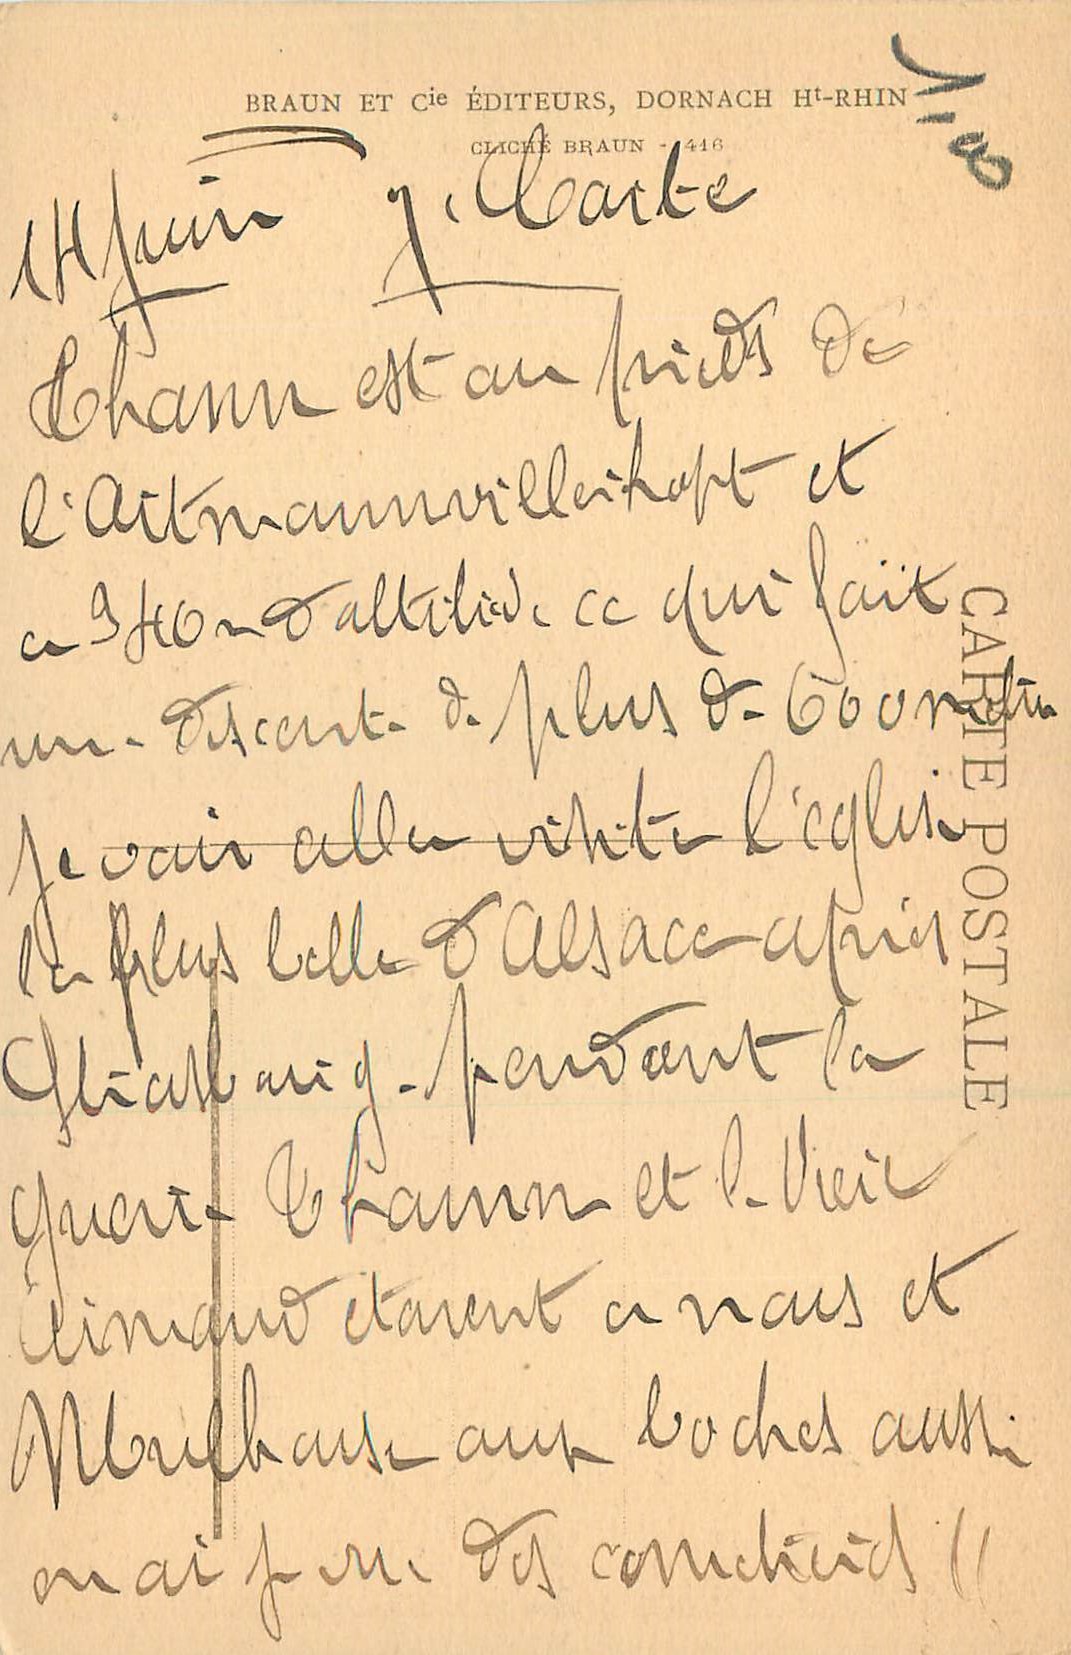 BRAUN ET Cie ÉDITEURS, DORNACH Ht-RHIN
CLICHÉ BRAUN - 416
14 Juin 7. Carte
Thann est au pieds de
l'Artmannvillerkopt et
a 340 m d'altitude ce qui fait
une descente de plus de 600 metres
je vais aller visiter l'église
la plus belle d'Alsace après
Strasbourg. pendant la
guerre Thann et le Vieil
Armand étaient a nous et
Mulhouse aux boches aussi
en ai je vu des cimetières !!
CARTE POSTALE